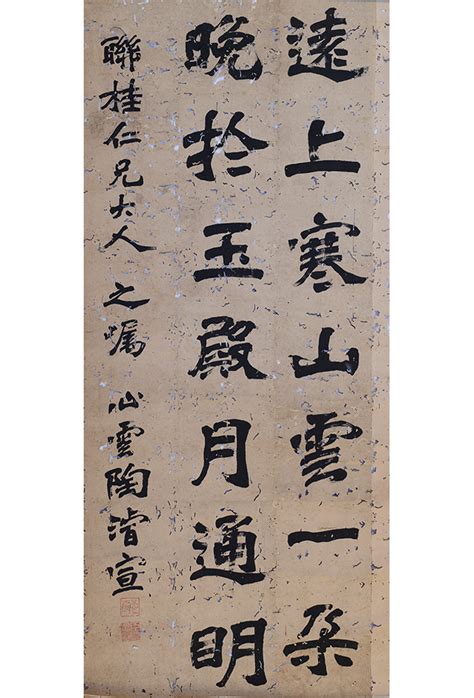 遠上寒山雲一朵
晚於玉殿月通明
聯桂仁兄大人之嘱
心雲陶濬宣